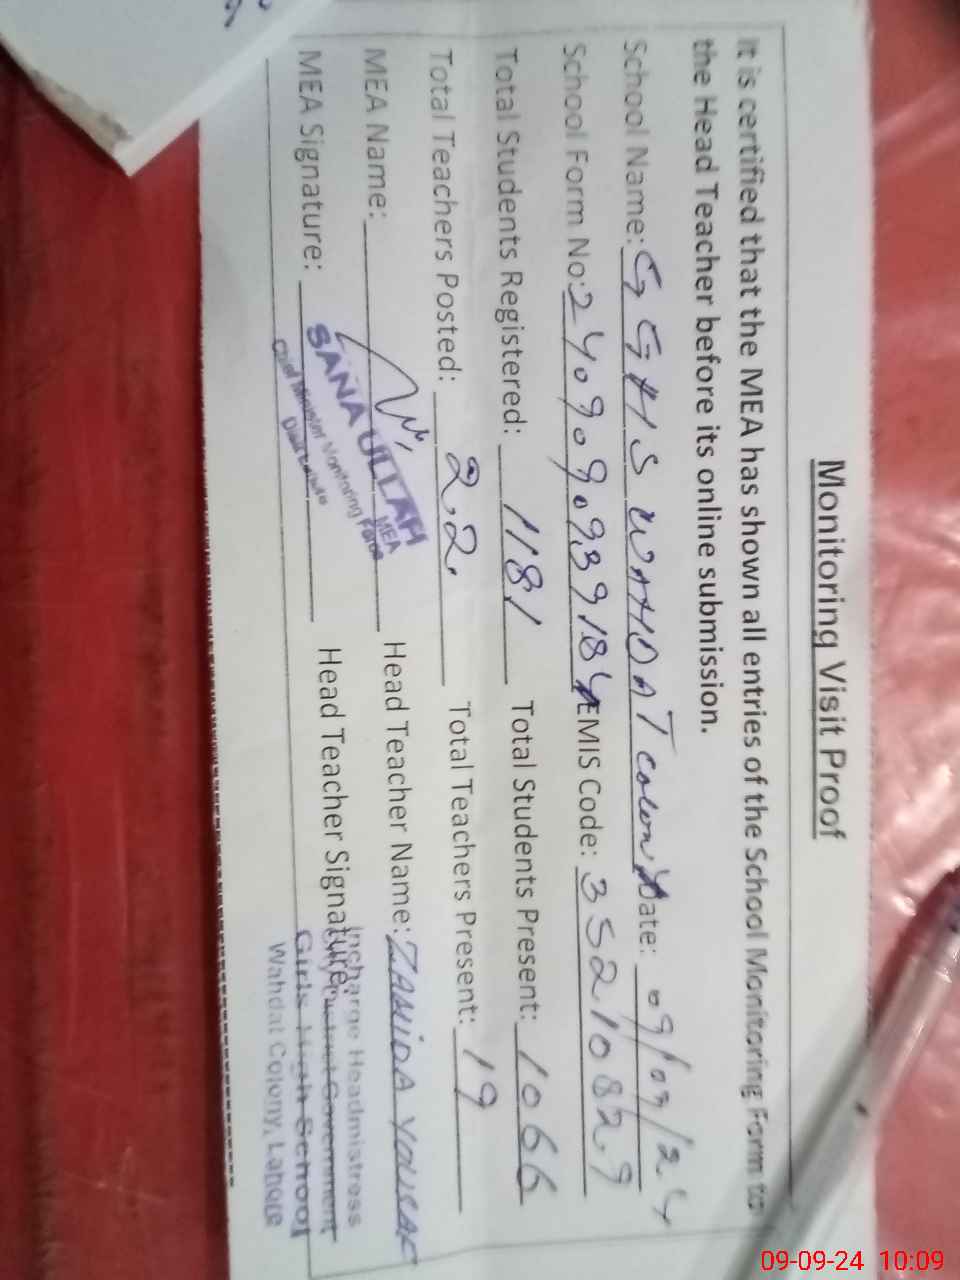 Monitoring Visit Proof
It is certified that the MEA has shown all entries of the School Monitoring Form to
the Head Teacher before its online submission.
School Name: GGHS WAHDAT colony Date: 09/09/24
School Form No: EMIS Code: 35210829
Total Students Registered: 1181 Total Students Present: 1066
Total Teachers Posted: 22 Total Teachers Present: 19
MEA Name: Head Teacher Name: ZAHIDA YOUSAF
MEA Signature: Head Teacher Signature:
SANA ULLAH
MEA
Chief Minister Monitoring Force
Incharge Headmistress
Government
Girls High School
Wahdat Colony, Lahore
09-09-24 10:09